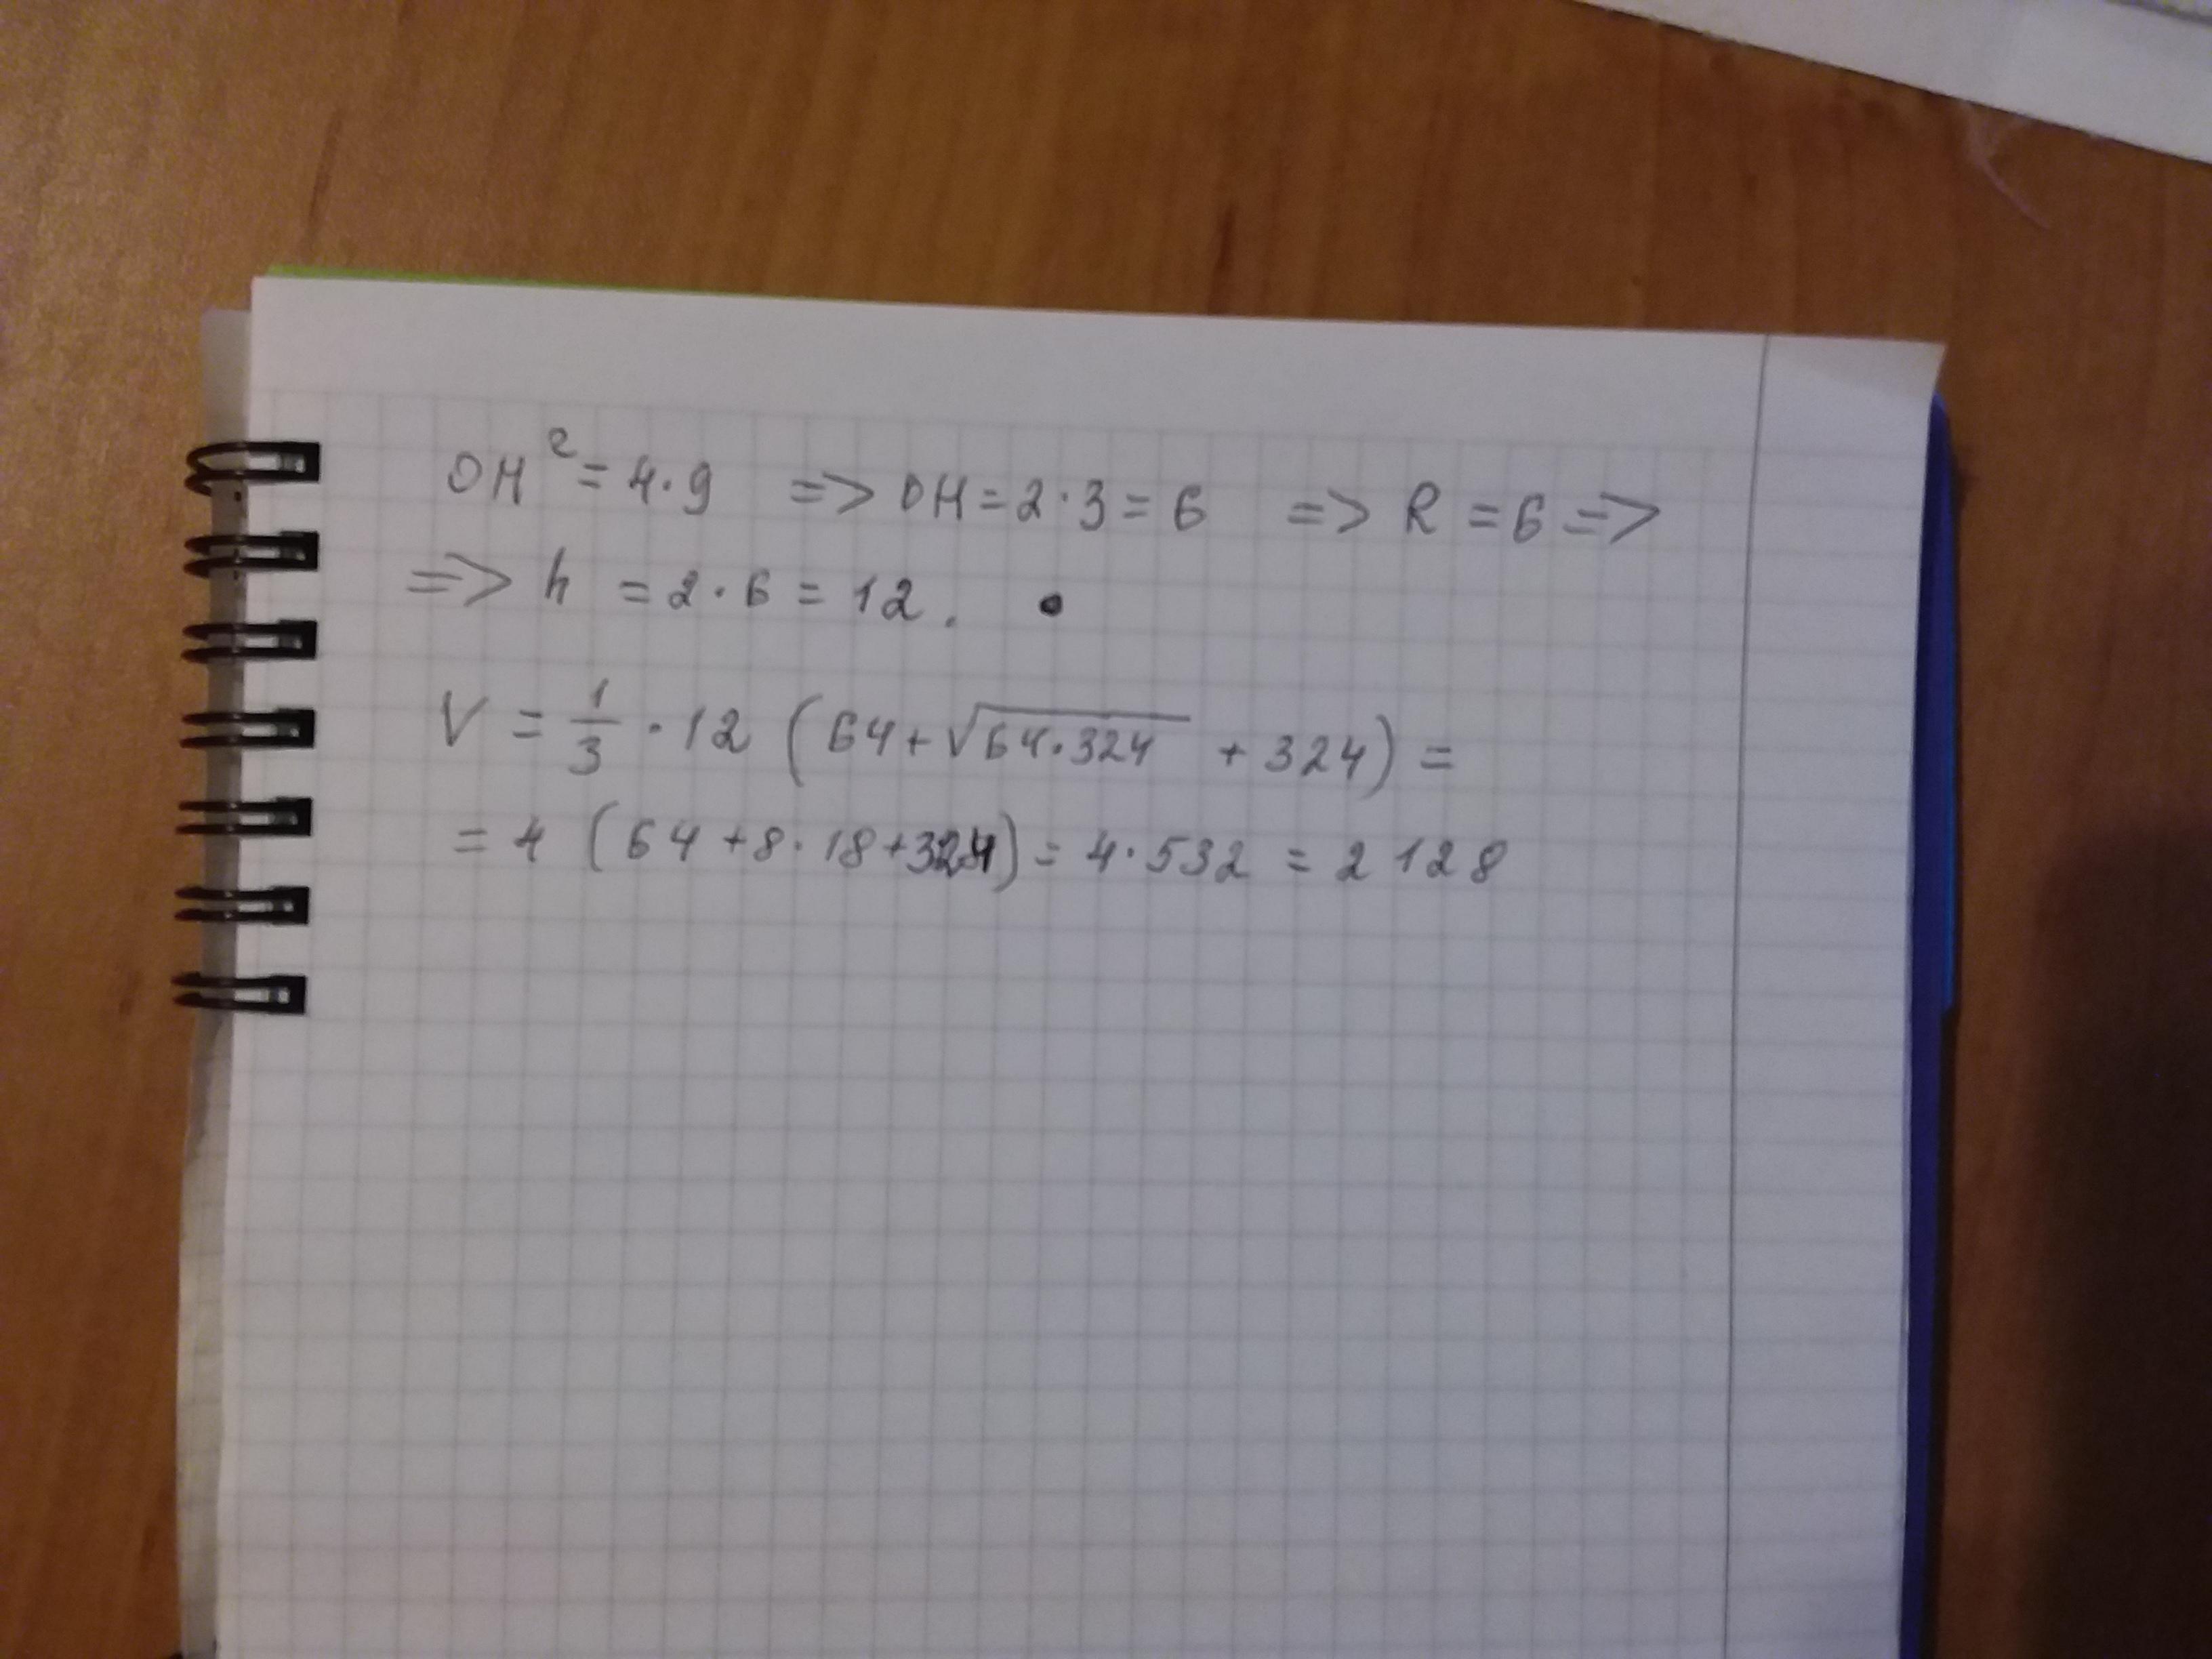 OH² = 4·9 => OH = 2·3 = 6 => R = 6 =>
=> h = 2·6 = 12.
V = 1/3 · 12 (64 + √(64·324) + 324) =
= 4 (64 + 8·18 + 324) = 4·532 = 2128